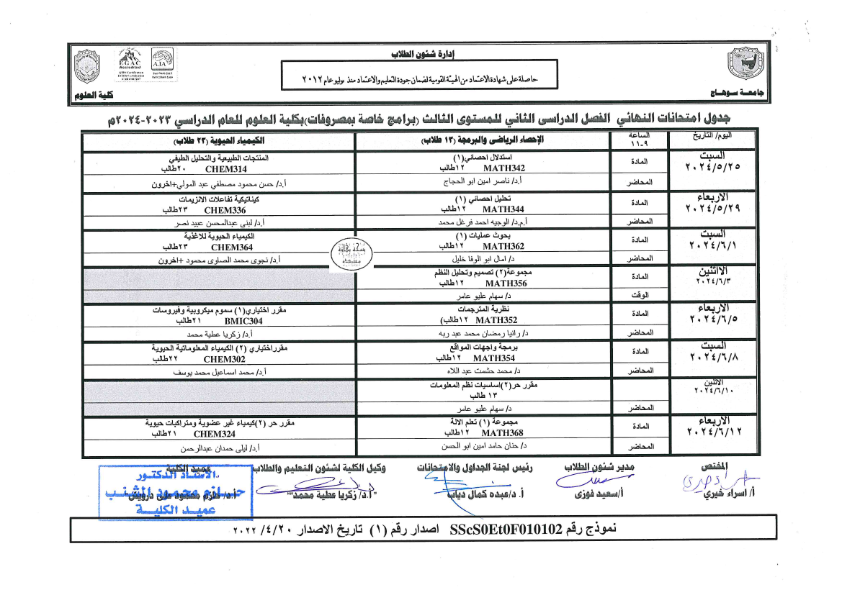 إدارة شئون الطلاب
حاصلة على شهادة الاعتماد من الهيئة القومية لضمان جودة التعليم والاعتماد منذ يوليو عام ٢٠١٢
جامعة سوهاج
كلية العلوم
جدول امتحانات النهائي الفصل الدراسى الثاني للمستوى الثالث (برامج خاصة بمصروفات)بكلية العلوم للعام الدراسي ٢٠٢٣-٢٠٢٤م
اليوم/ التاريخ الساعة ٩-١١ الإحصاء الرياضى والبرمجة (١٣ طالب) الكيمياء الحيوية (٢٣ طالب)
السبت ٢٠٢٤/٥/٢٥ المادة استدلال احصائي(١) MATH342 ١٢طالب المنتجات الطبيعية والتحليل الطيفي CHEM314 ٢٠طالب
المحاضر أ.د/ ناصر امين ابو الحجاج أ.د/ حسن محمود مصطفي عبد المولي+اخرون
الاربعاء ٢٠٢٤/٥/٢٩ المادة تحليل احصائي (١) MATH344 ١٢طالب كيناتيكية تفاعلات الانزيمات CHEM336 ٢٣طالب
المحاضر أ.م.د/ الوجيه احمد فرغل محمد أ.د/ لبنى عبدالمحسن عبيد نصر
السبت ٢٠٢٤/٦/١ المادة بحوث عمليات (١) MATH362 ١٢طالب الكيمياء الحيوية للاغذية CHEM364 ٢٣طالب
المحاضر د/ امال ابو الوفا خليل أ.د/ نجوى محمد الصاوى محمود +اخرون
الاثنين ٢٠٢٤/٦/٣ المادة مجموعة(٢) تصميم وتحليل النظم MATH356 ١٢طالب
الوقت د/ سهام عليو عامر
الاربعاء ٢٠٢٤/٦/٥ المادة نظرية المترجمات MATH352 ١٢طالب) مقرر اختياري(١) سموم ميكروبية وفيروسات BMIC304 ٢١طالب
المحاضر د/ رانيا رمضان محمد عبد ربه أ.د/ زكريا عطية محمد
السبت ٢٠٢٤/٦/٨ المادة برمجة واجهات المواقع MATH354 ١٢طالب مقرراختياري (٢) الكيمياء المعلوماتية الحيوية CHEM302 ٢٢طالب
المحاضر د/ محمد حشمت عبد اللاه أ.د/ محمد اسماعيل محمد يوسف
الاثنين ٢٠٢٤/٦/١٠ مقرر حر(٢)اساسيات نظم المعلومات ١٣ طالب
المحاضر د/ سهام عليو عامر
الاربعاء ٢٠٢٤/٦/١٢ المادة مجموعة (١) تعلم الالة MATH368 ١٢طالب مقرر حر (٢)كيمياء غير عضوية ومتراكبات حيوية CHEM324 ٢١طالب
المحاضر د/ حنان حامد امين ابو الحسن أ.د/ ليلى حمدان عبدالرحمن
المختص مدير شئون الطلاب رئيس لجنة الجداول والامتحانات وكيل الكلية لشئون التعليم والطلاب عميد الكلية
أ/ اسراء خيري أ/سعيد فوزى أ. د/عبده كمال دياب أ.د/ زكريا عطية محمد
الأستاذ الدكتور
عميد الكلية
نموذج رقم SScS0Et0F010102 اصدار رقم (١) تاريخ الاصدار ٢٠/٤/ ٢٠٢٢